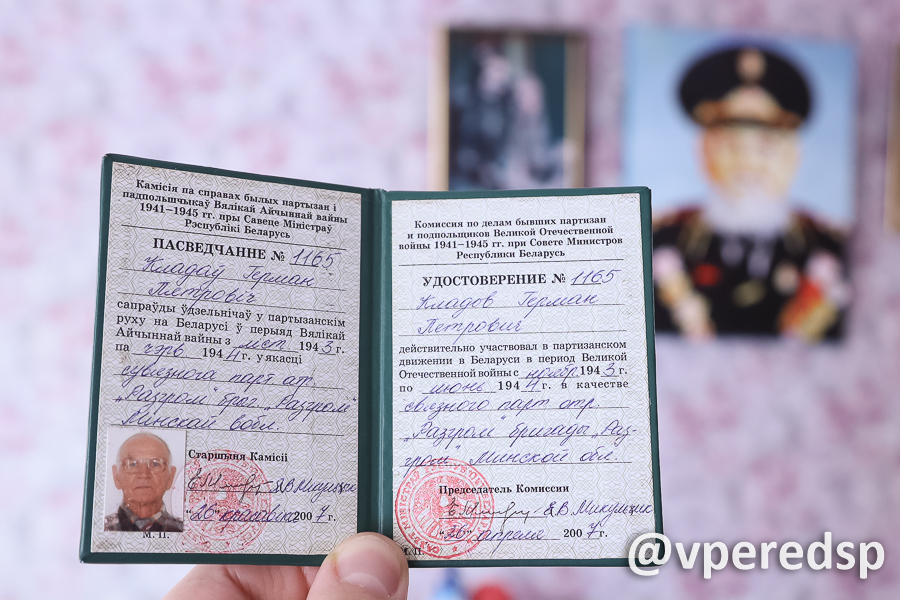 Камісія па справах былых партызан і
падпольшчыкаў Вялікай Айчыннай вайны
1941—1945 гг. пры Савеце Міністраў
Рэспублікі Беларусь
ПАСВЕДЧАННЕ № 1165
Кладаў Герман
Пятровіч
сапраўды ўдзельнічаў у партызанскім
руху на Беларусі ў перыяд Вялікай
Айчыннай вайны з ліст. 1943 г.
па чэрв. 1944 г. у якасці
сувязнога парт. атр.
„Разгром" брыг. „Разгром"
Мінскай вобл.
Старшыня Камісіі
Э.В. Мікульчик
"26" красавіка 2007 г.
М. П.
Комиссия по делам бывших партизан
и подпольщиков Великой Отечественной
войны 1941—1945 гг. при Совете Министров
Республики Беларусь
УДОСТОВЕРЕНИЕ № 1165
Кладов Герман
Петрович
действительно участвовал в партизанском
движении в Беларуси в период Великой
Отечественной войны с ноябр. 1943 г.
по июнь 1944 г. в качестве
связного парт. отр.
„Разгром" бригады „Раз-
гром" Минской обл.
Председатель Комиссии
"26" апреля 2007 г.
М.П.
@vperedsp